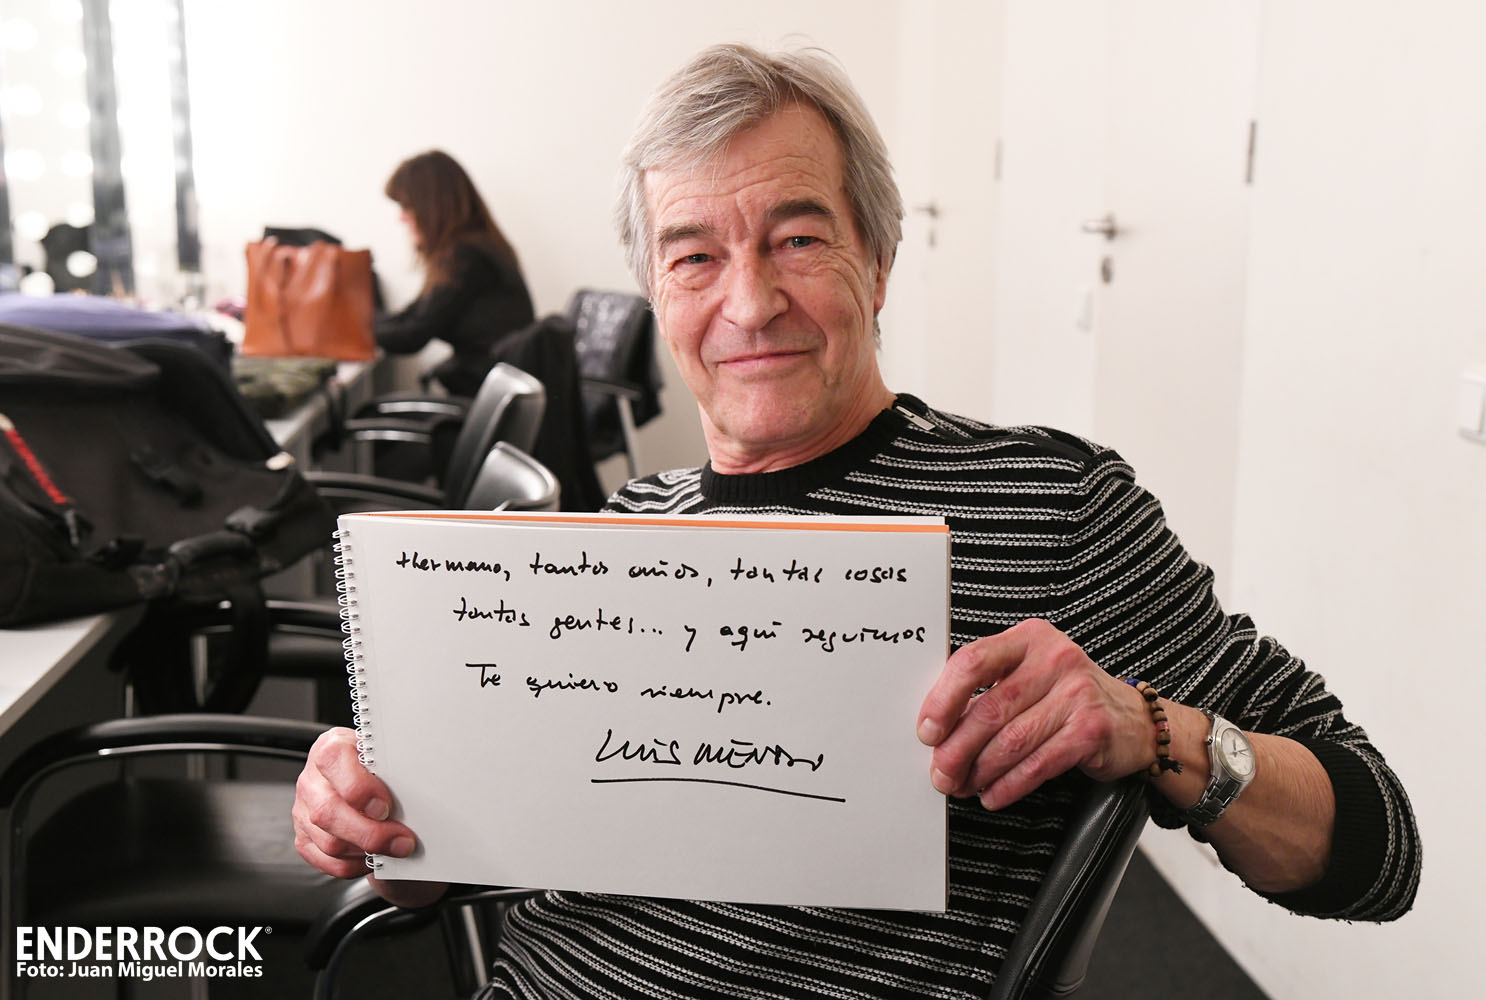 Hermano, tantos años, tantas cosas
tantas gentes... y aquí seguimos
Te quiero siempre.
LUIS MENDO
ENDERROCK®
Foto: Juan Miguel Morales